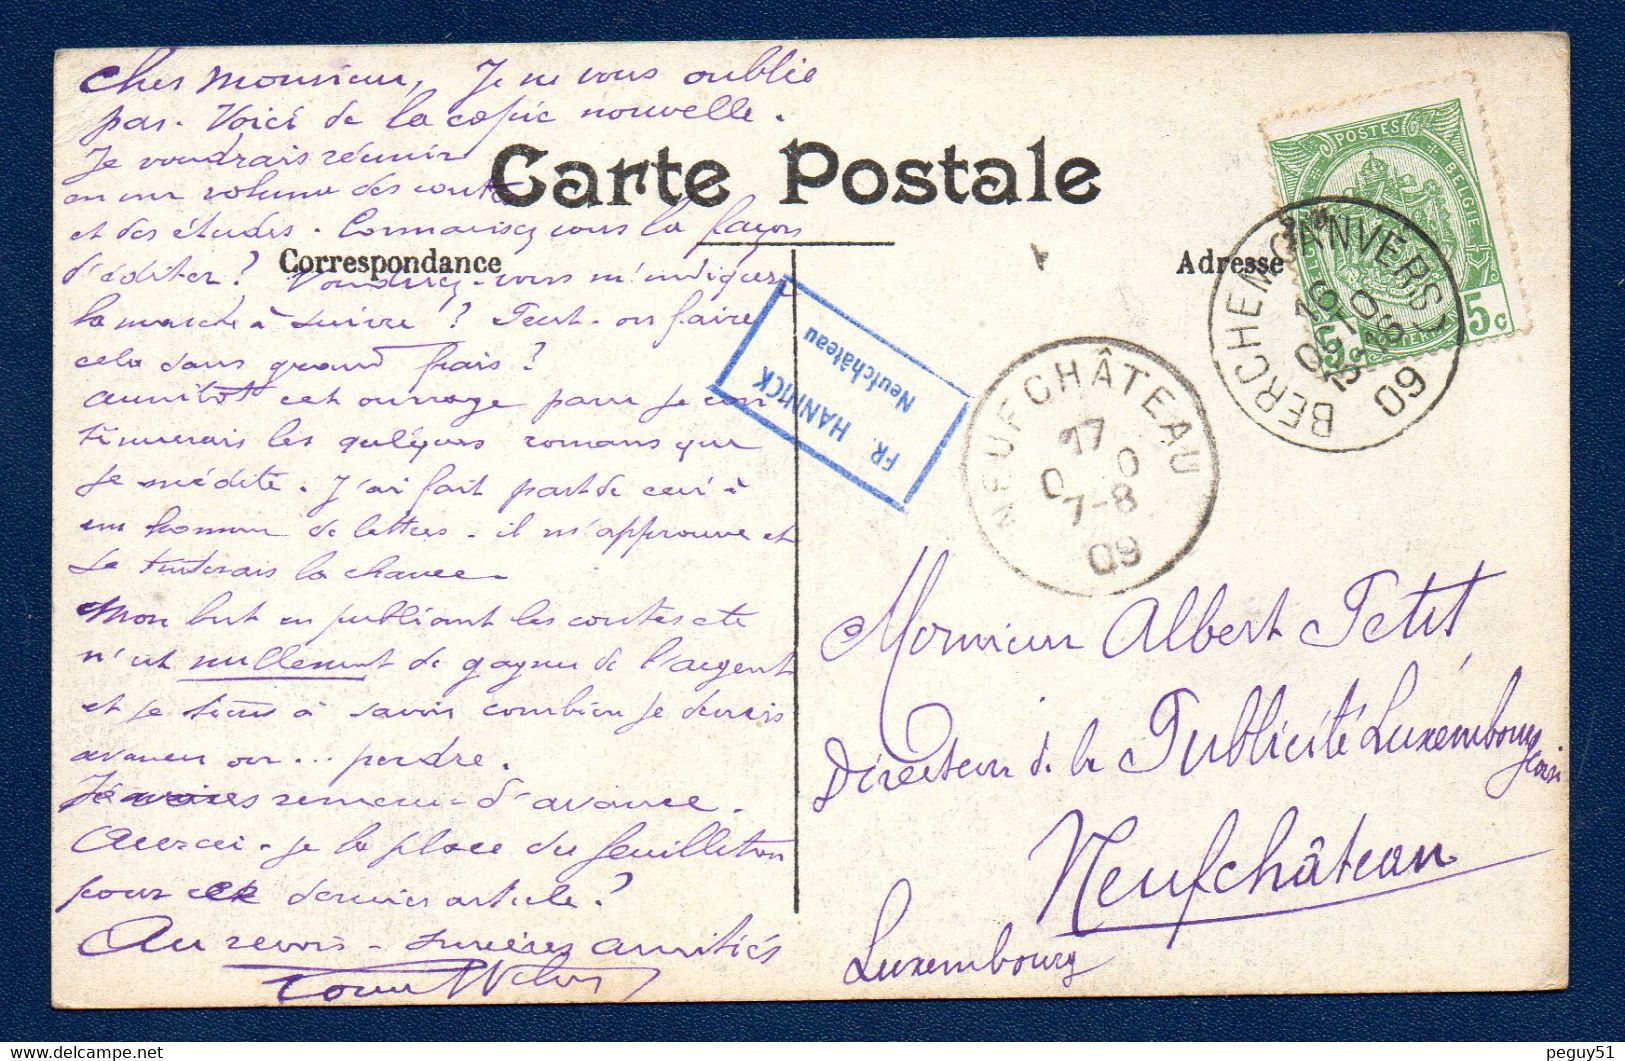 Cher Monsieur, Je ne vous oublie
pas. Voici de la copie nouvelle.
Je voudrais réunir
en un volume des contes
et des études. Connaissez vous la façon
d'éditer? Voudriez-vous m'indiquer
la marche à suivre? Peut-on faire
cela sans grand frais?
Aussitôt cet ouvrage paru je con
tinuerais les quelques romans que
je médite. J'ai fait part de ceci à
un homme de lettres. il m'approuve et
je tenterais la chance
Mon but en publiant les contes etc
n'est nullement de gagner de l'argent
et je tiens à savoir combien je devrais
avancer ou... perdre.
remerci d'avance.
Aurai-je la place du feuilleton
pour ce dernier article?
Au revoir - sincères amitiés
Carte Postale
Correspondance
Adresse
FR. HANNICK
Neufchâteau
NEUFCHÂTEAU
17
7-8
09
BERCHEM (ANVERS)
09
POSTES
BELGIE
5c
5c
Monsieur Albert Petit,
Directeur de la Publicité Luxembourg
eoise
Neufchâteau
Luxembourg
peguy51